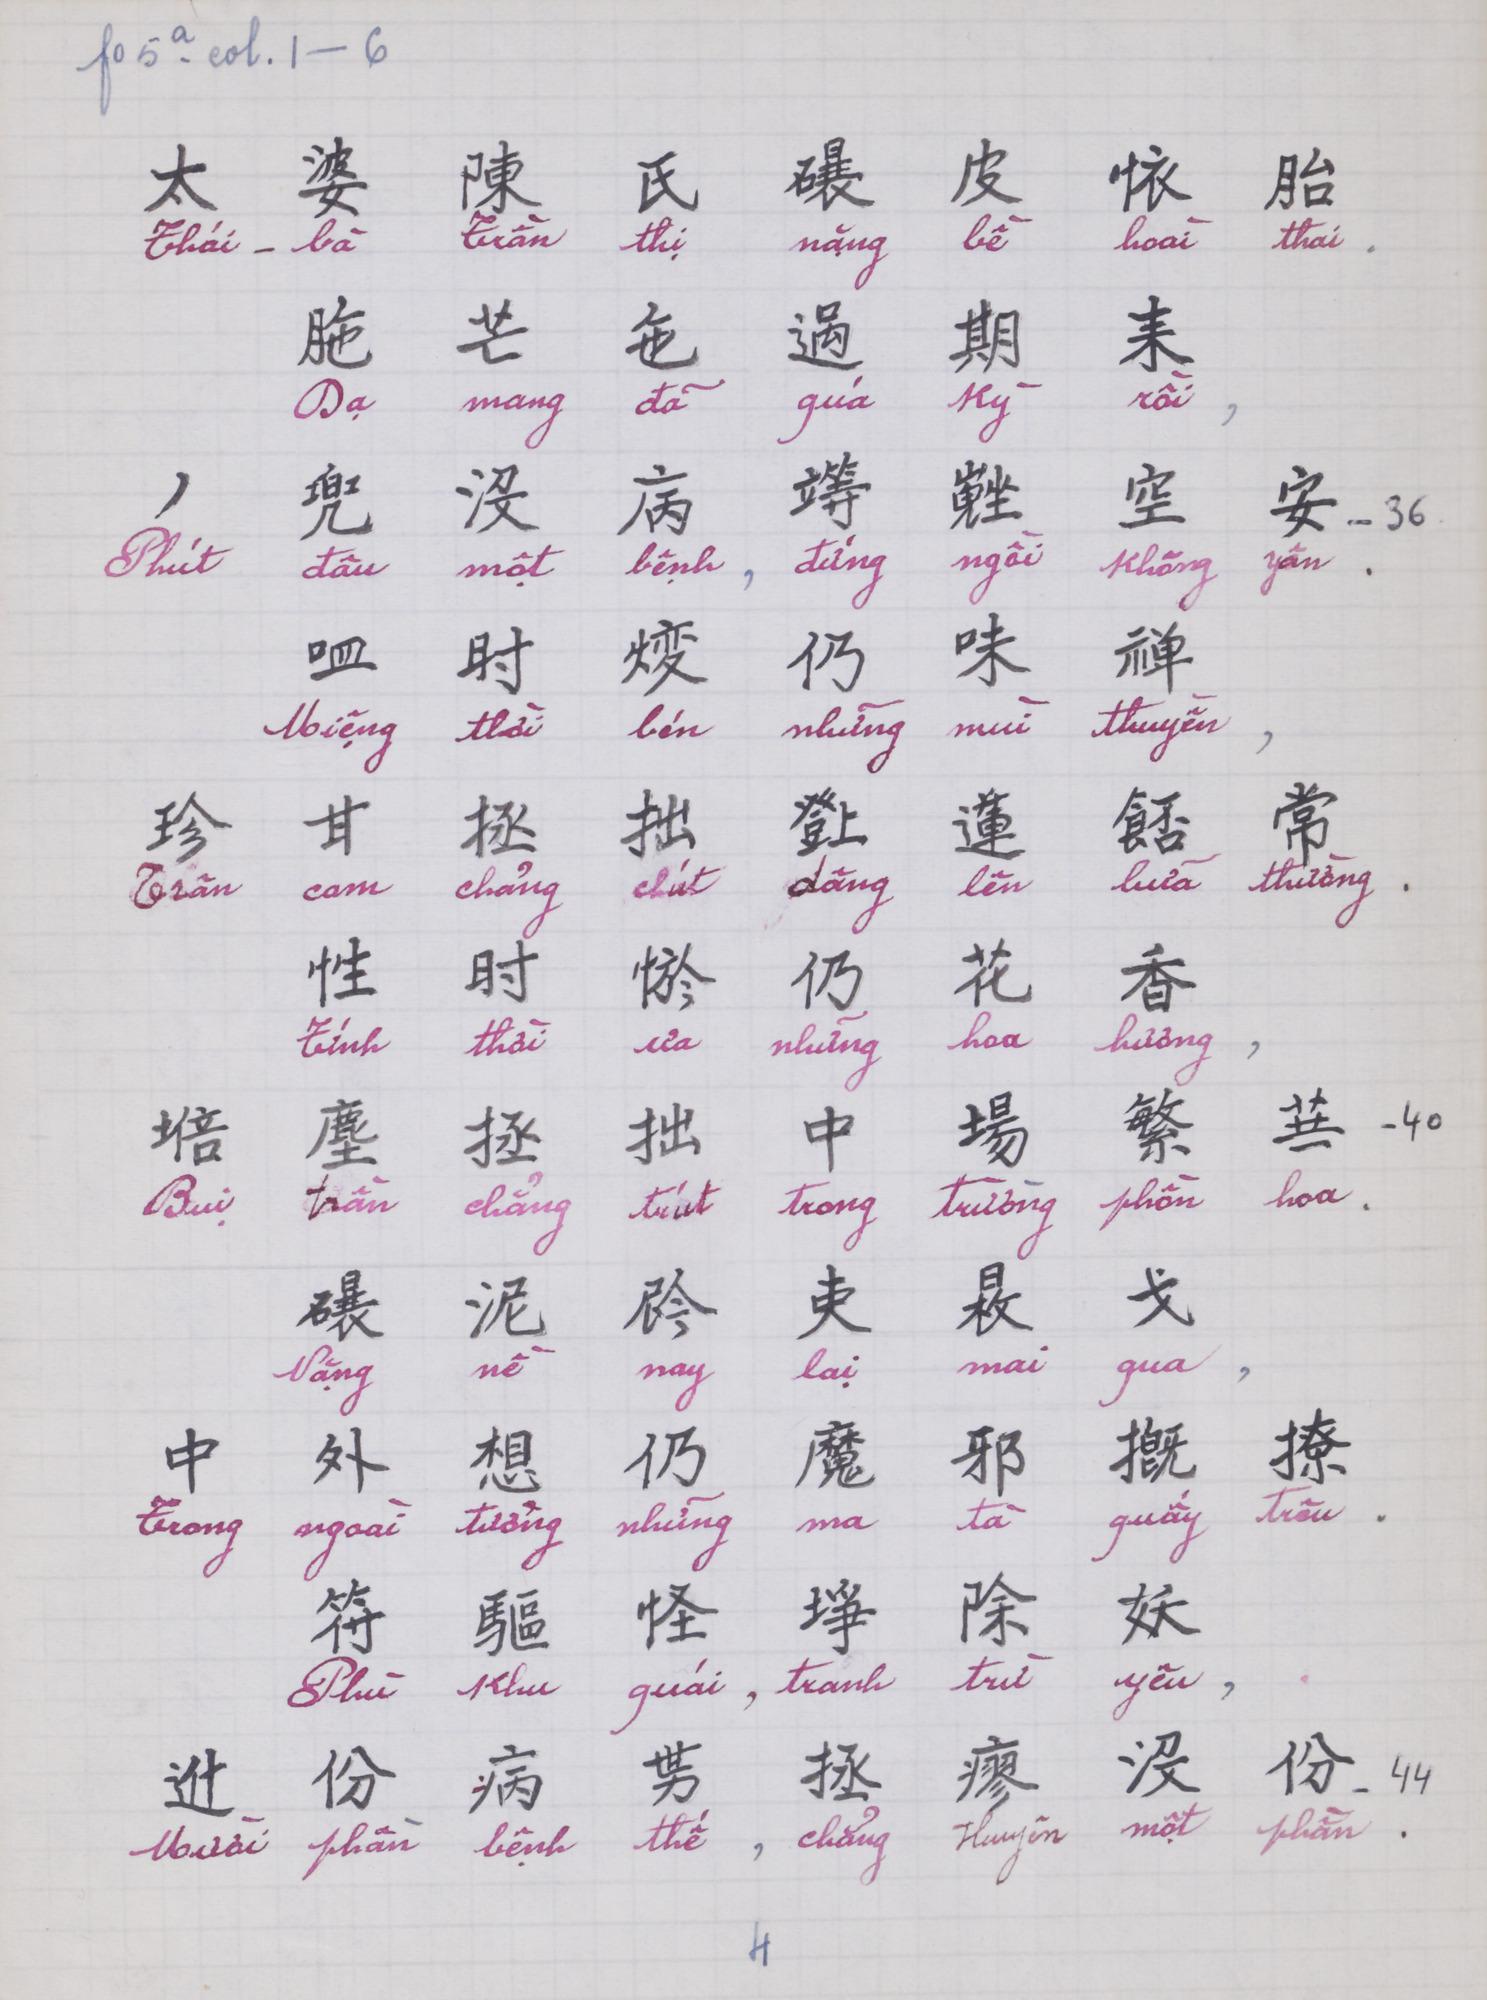 fo 5ª. col. 1 — 6
太 婆 陳 氏 𥗾 皮 懷 胎
Thái - bà Trần thị nặng bề hoài thai .
胣 芒 㐌 過 期 耒
Dạ mang đã quá kỳ rồi ,
丿 兜 没 病 𨅸 𡾵 空 安 - 36
Phút đâu một bệnh , đứng ngồi không yên .
𠰘 时 㷶 仍 味 禅
Miệng thời bén những mùi thuyền ,
珍 甘 拯 拙 𤼸 蓮 𩛷 常
Trân cam chẳng chút dâng lên bữa thường .
性 时 𢚸 仍 花 香
Tính thời ưa những hoa hương ,
培 塵 拯 拙 中 場 繁 華 - 40
Bụi trần chẳng trút trong trường phồn hoa .
𥗾 泥 𫢩 吏 𣈕 戈
Nặng nề nay lại mai qua ,
中 外 想 仍 魔 邪 摡 撩
Trong ngoài tưởng những ma tà quấy trêu .
符 驅 怪 埩 除 妖
Phù khu quái , tranh trừ yêu ,
𨑮 份 病 势 拯 瘳 没 份 - 44
Mười phần bệnh thế , chẳng thuyên một phần .
4